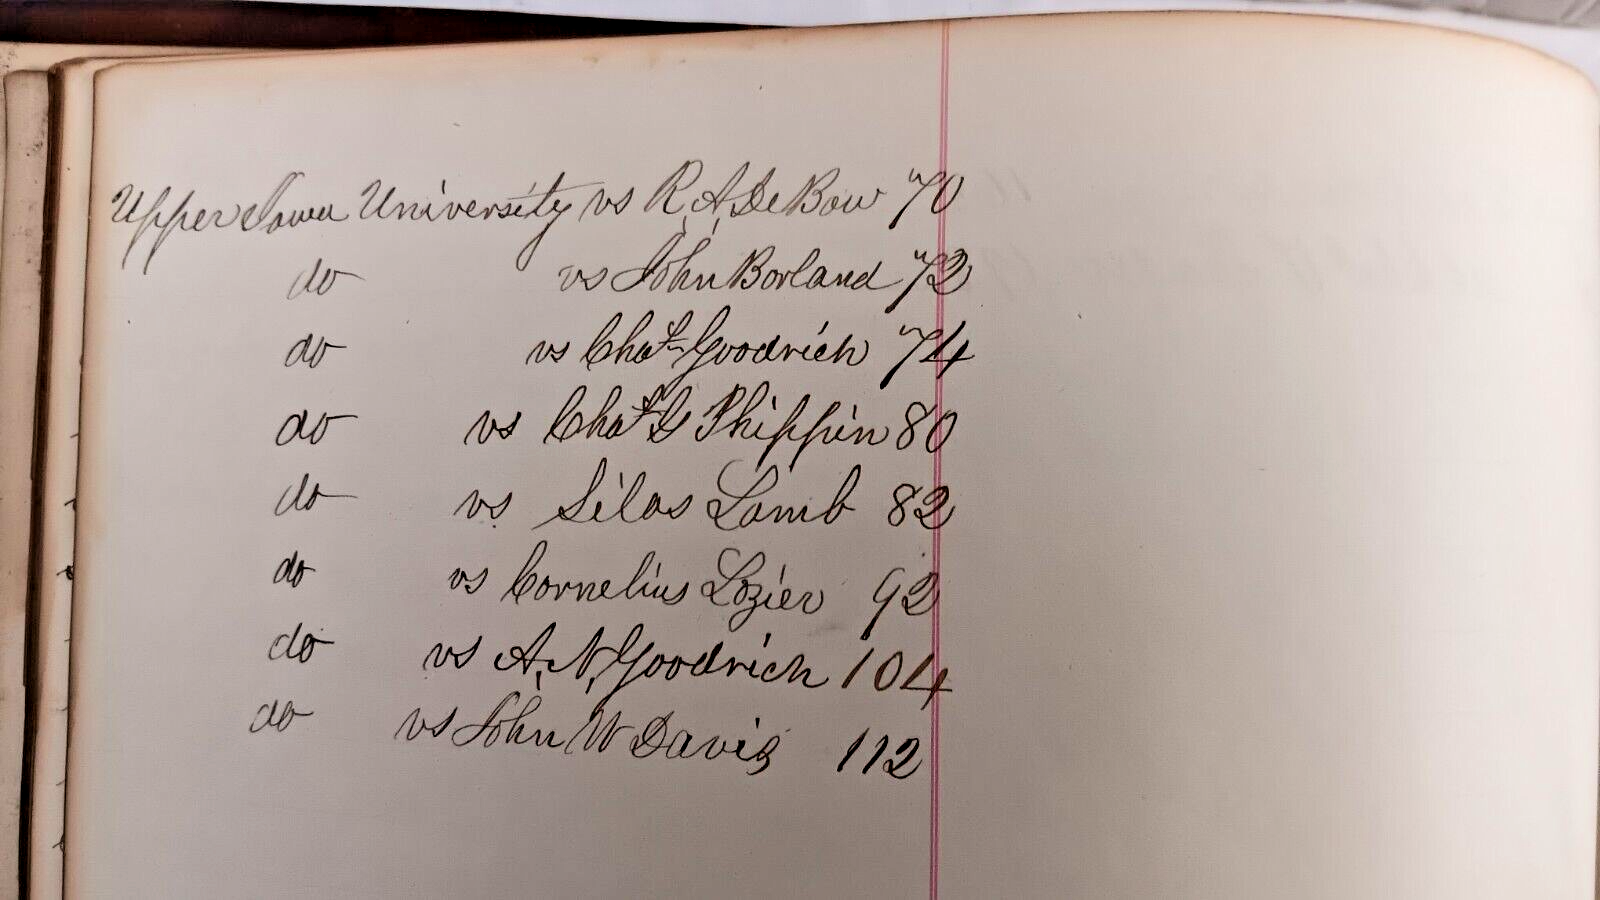 Upper Iowa University vs R. A. DeBow 70
do vs John Borland 72
do vs Chas Goodrich 74
do vs Chas G Phippin 80
do vs Silas Lamb 82
do vs Cornelius Lozier 92
do vs A. N. Goodrich 104
do vs John W Davis 112